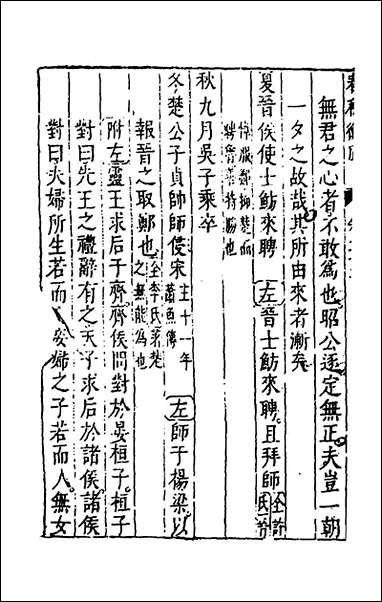 無君之心者不敢為也昭公逐定無正夫豈一朝
一夕之故哉其所由來者漸矣
夏晉侯使士魴來聘左晉士魴來聘且拜師全許氏晉
悼服鄭抑楚而聘魯特勝也
秋九月吳子乘卒
冬楚公子貞帥師侵宋主十一年蕭魚傳左師于楊梁以
報晉之取鄭也全李氏楚之無能為也
附左靈王求后于齊齊侯問對於晏桓子桓子
對曰先王之禮辭有之天子求后於諸侯諸侯
對曰夫婦所生若而妾婦之子若而人無女